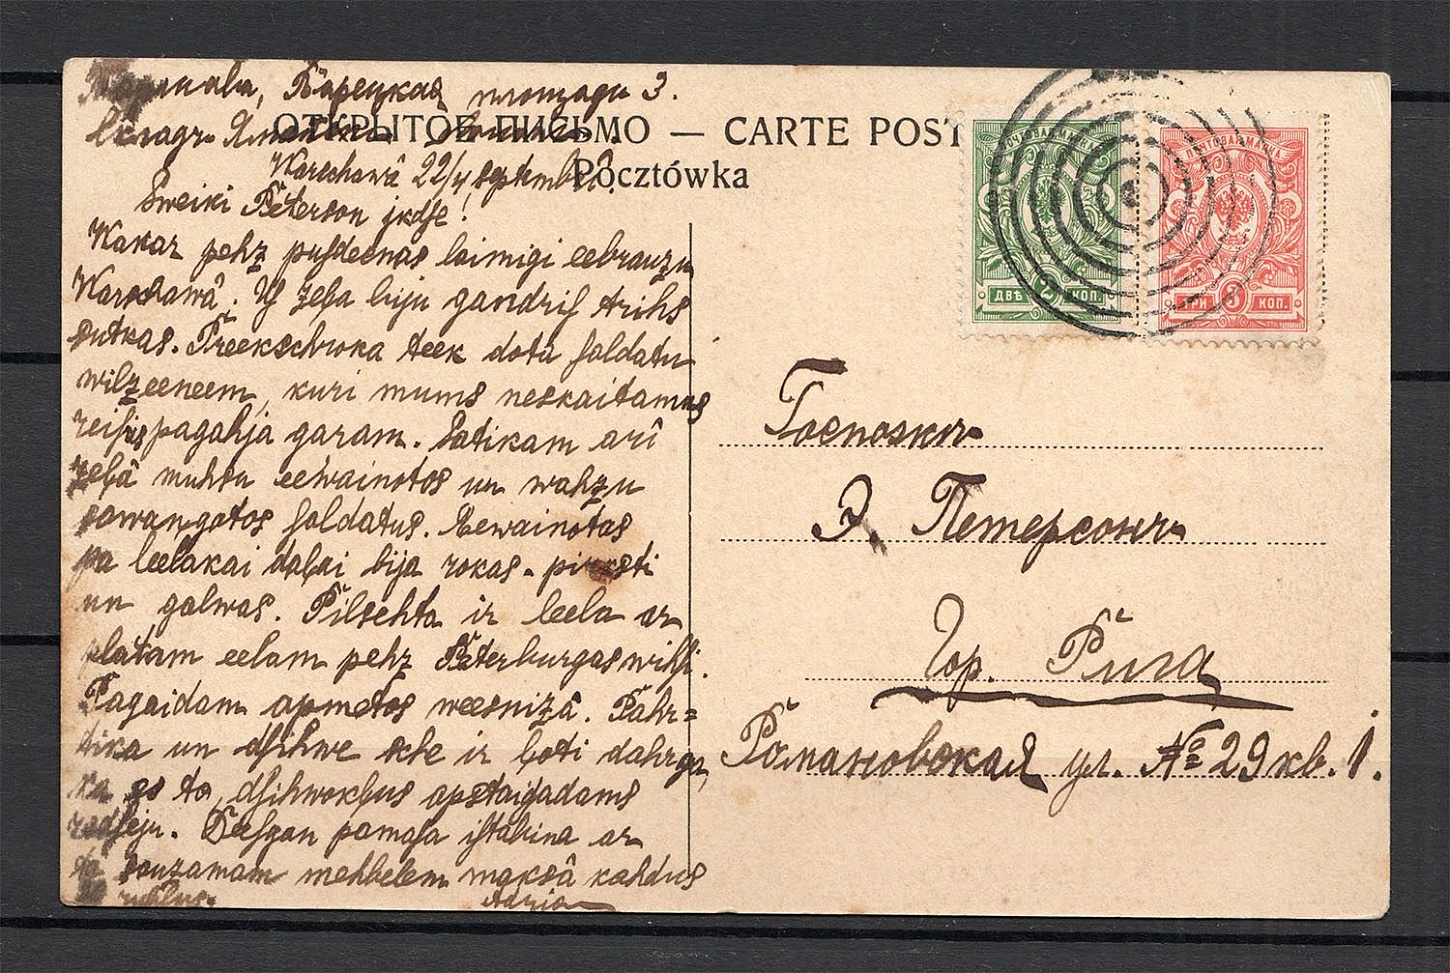 Варшава, Варецкая площадь 3.
ОТКРЫТОЕ ПИСЬМО — CARTE POST
Pocztówka
Warschawâ 22/ septembrî
Sweiki Peterson jkdse!
Wakar pehz pusdeenas laimigi eebrauzu
Warschawâ. Y zeļa biju gandrih trihs
sutkas. Preekschroka teek dota saldatu
wilzeeneem, kuri mums neskaitamas
reises pagahja garam. Satikam arî
zeļâ muhsu eewainotos un wahzu
sawangotos saldatus. Eewainotas
pa leelakai daļai bija rokas. pirksti
un galwas. Pilsehta ir leela ar
platam eelam pehz Peterburgas wihsi.
Pagaidam apmetos weesnizâ. Pahr=
tika un dsihwe sche ir ļoti dahrga,
ka jo to, dsihwokļus apstaigadams
redseju. Deesgan pamasa istabina ar
sauzamam mehbelem maksâ kahdus
rubļus.
ПОЧТОВАЯ МАРКА
ДВѢ 2 КОП.
ПОЧТОВАЯ МАРКА
ТРИ 3 КОП.
Господину
Э. Петерсонъ
Гор. Рига
Романовская ул. № 29 кв. 1.